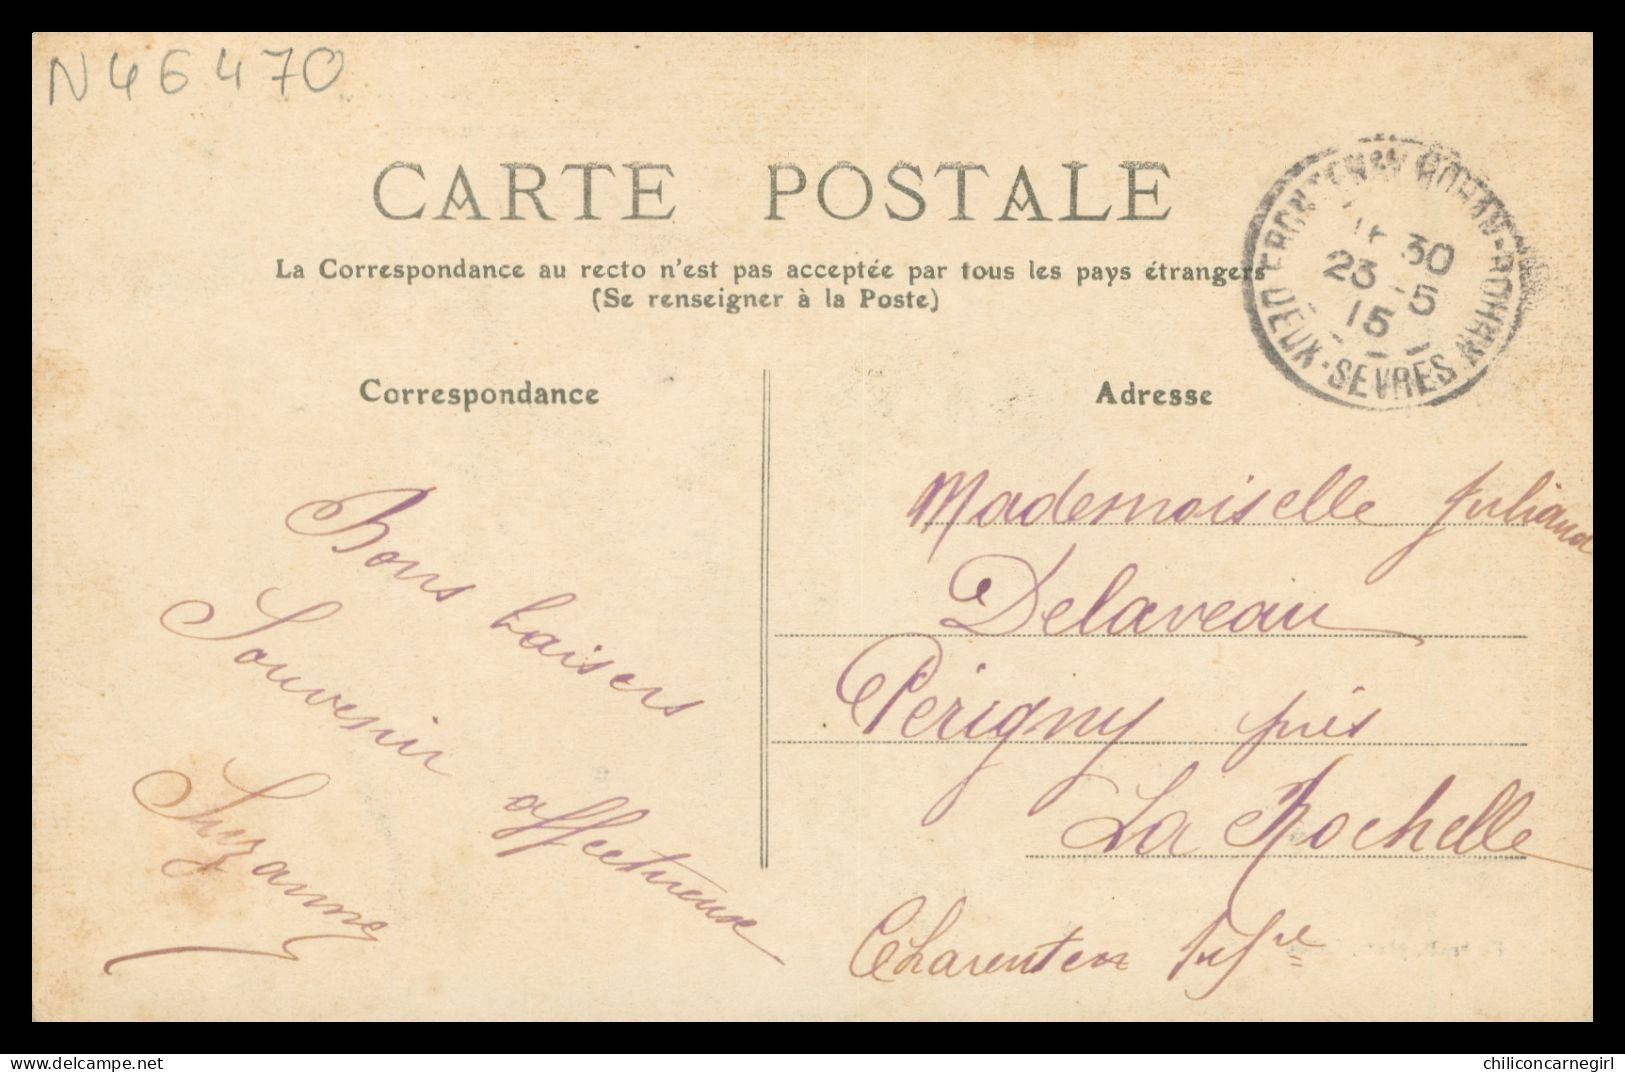 N46470
CARTE POSTALE
La Correspondance au recto n'est pas acceptée par tous les pays étrangers
(Se renseigner à la Poste)
FRONTENAY ROHAN-ROHAN
30
23 - 5
15
DEUX-SEVRES
Correspondance
Adresse
Bons baisers
Souvenir affectueux
Suzanne
Mademoiselle Juliana
Delaveau
Périgny près
La Rochelle
Charente Infre
chiliconcarnegirl